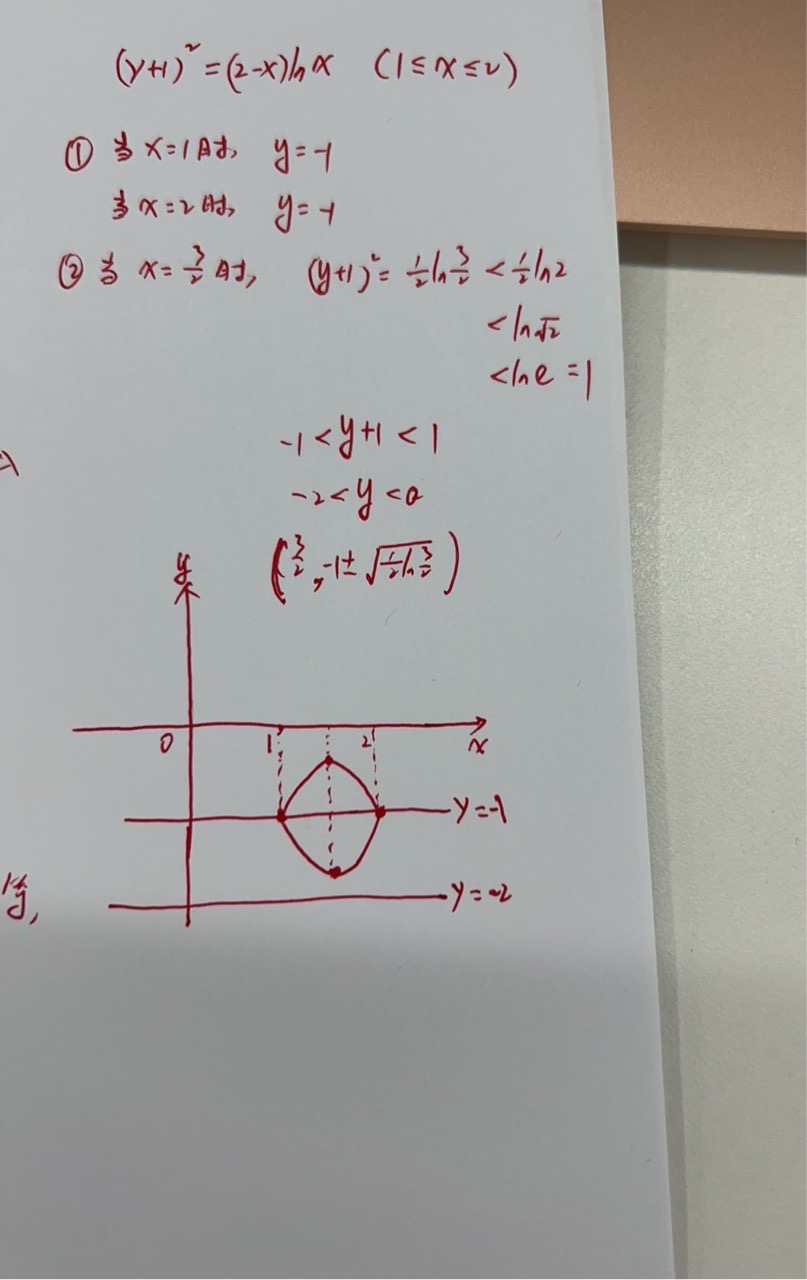 (y+1)²=(2-x)lnx (1≤x≤2)
① 当 x=1时, y=-1
当 x=2时, y=-1
② 当 x=3/2时, (y+1)²=1/2ln3/2<1/2ln2
<ln√2
<lne=1
-1<y+1<1
-2<y<0
(3/2,-1±√(1/2ln3/2))
y
0 1 2 x
y=-1
y=-2